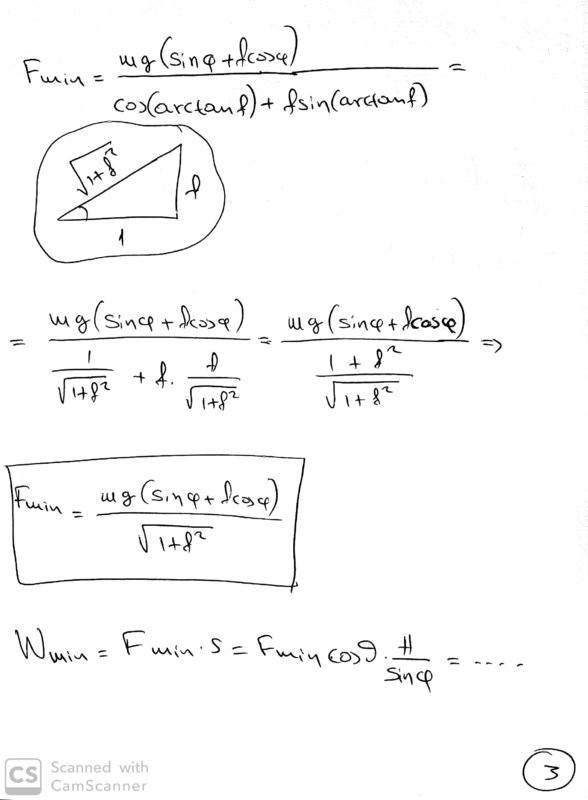 Fmin = mg(sinφ + fcosφ) / cos(arctanf) + fsin(arctanf) =
√1+f² f
1
= mg(sinφ + fcosφ) / 1/√1+f² + f · f/√1+f² = mg(sinφ + fcosφ) / 1 + f²/√1+f² ⇒
Fmin = mg(sinφ + fcosφ) / √1+f²
Wmin = Fmin · S = Fmin cosϑ · H/sinφ = ....
3
CS Scanned with
CamScanner